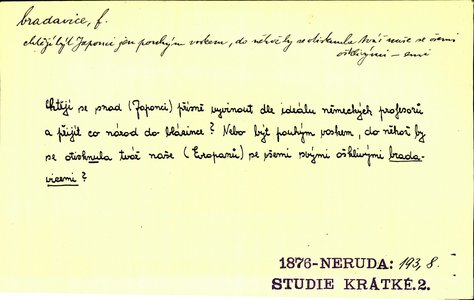 bradavice, f.
chtějí být Japonci jen pouhým voskem, do něhož by se otisknula tvář naše se všemi
ošklivými – emi
Chtějí se snad (Japonci) přísně vyvinout dle ideálu německých profesorů
a přijít co národ do blázince? Nebo být pouhým voskem, do něhož by
se otisknula tvář naše (Evropanů) se všemi svými ošklivými brada-
vicemi?
1876-NERUDA: 193, 8.
STUDIE KRÁTKÉ.2.